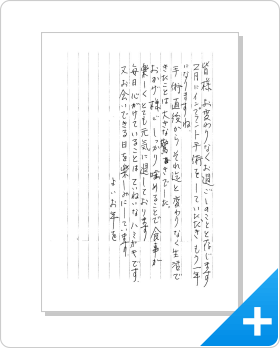 皆様 お変わりなくお過ごしのことと存じます
2月にインプラント手術をしていただき もう一年
になりますね。
手術直後から それ迄と変わりなく生活で
きたことは大きな驚きでした。
おかげ様で しっかり噛めることで食事が
楽しくとても元気に過しております
毎日心がけていることはていねいなハミガキです。
又お会いできる日を楽しみにしています
よいお年を